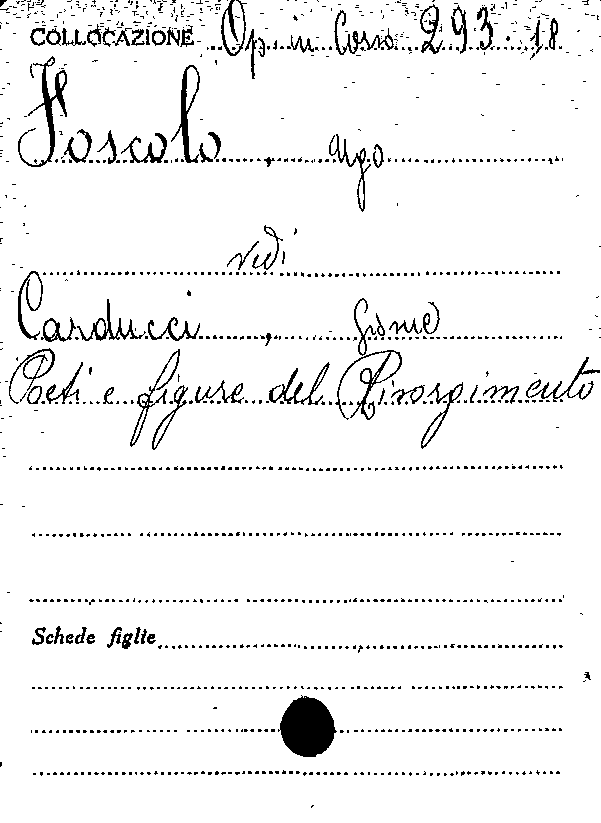 COLLOCAZIONE Op. in Corso 293.18
Foscolo, Ugo
vedi
Carducci, Giosue
Poeti e figure del Risorgimento
Schede figlie